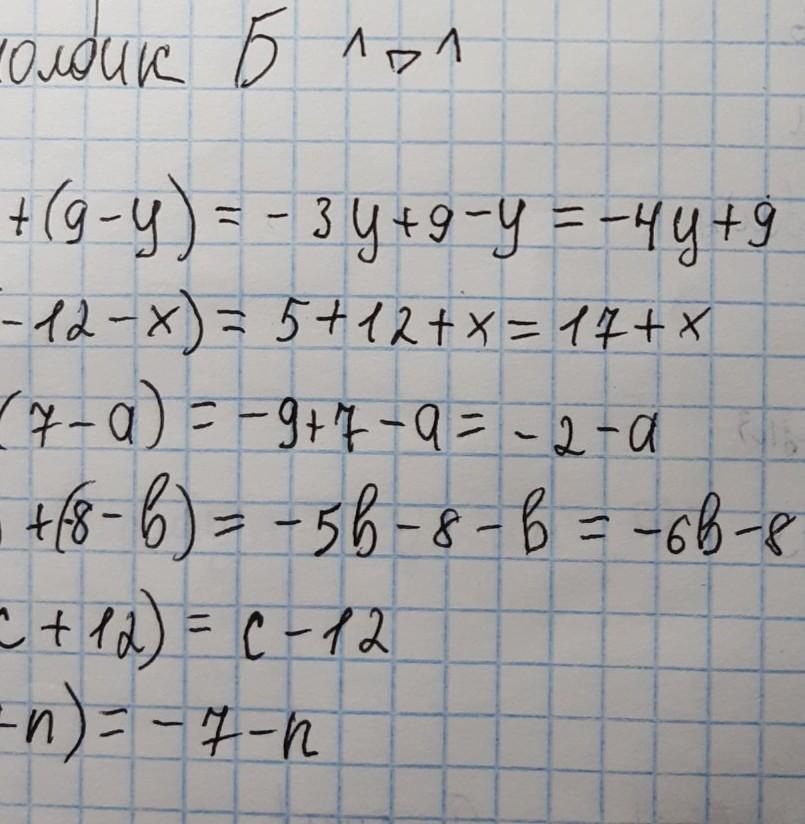 олбик Б
+(9-y) = -3y+9-y = -4y+9
-12-x) = 5+12+x = 17+x
(7-a) = -9+7-a = -2-a
+(-8-b) = -5b-8-b = -6b-8
c+12) = c-12
-n) = -7-n